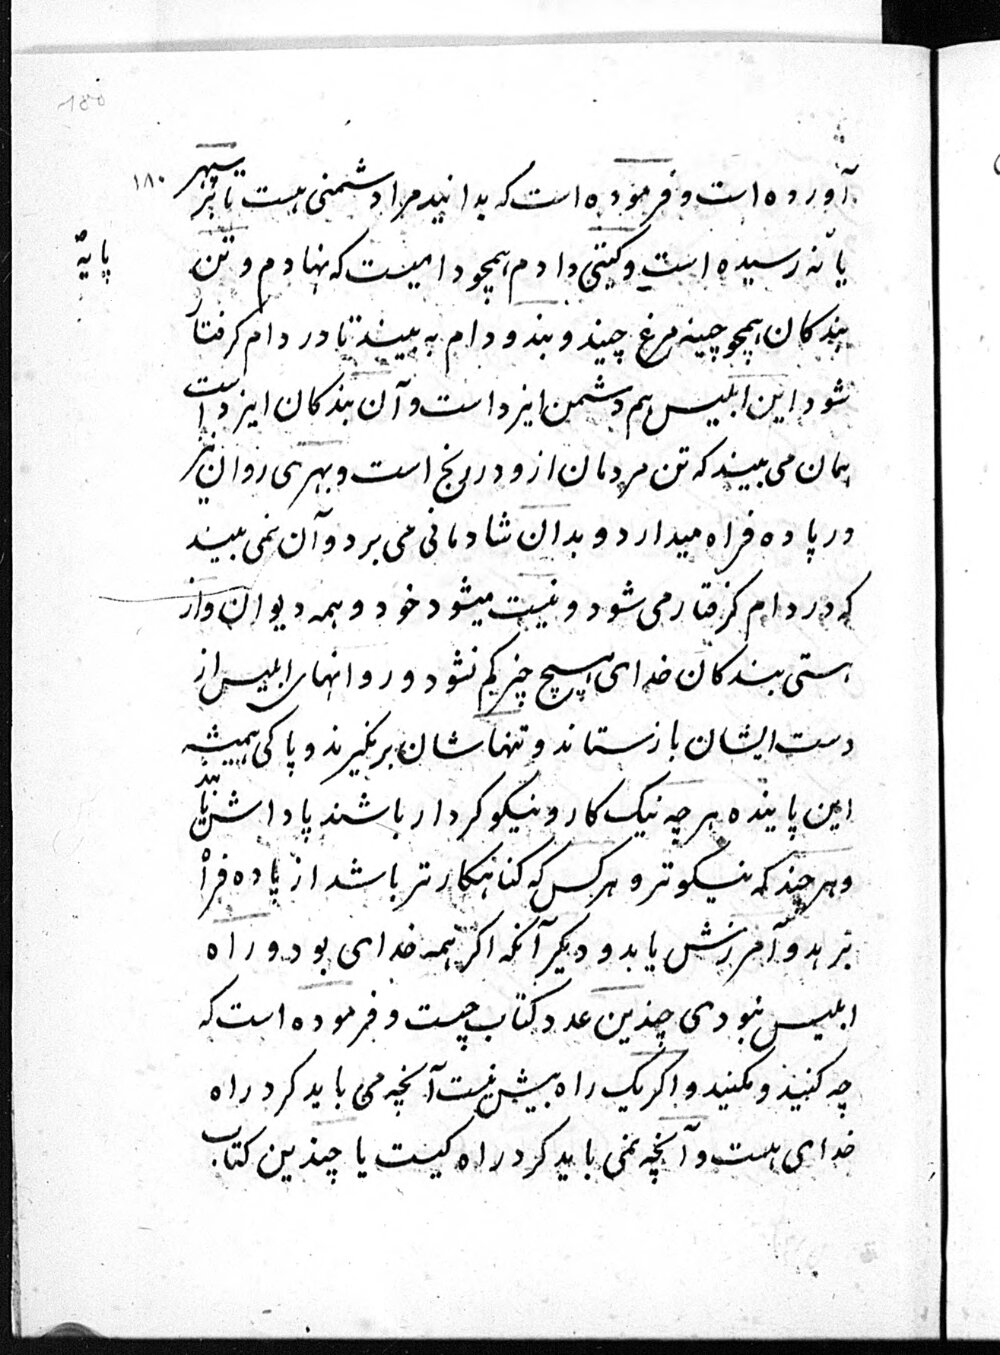 ۱۸۰
آورده است و فرموده است که بدانید مرا دشمنی هست تا بر سپهر
پایهٔ
یانه رسیده است و گیتی دادم همچو دامیست که نهادم و تن
بندکان همچو چینه مرغ چیند و بند و دام به بیند تا در دام کرفتار
شود این ابلیس هم دشمن ایزد است و آن بندکان ایزد است
همان می بیند که تن مردمان ازو در رنج است و بهری روان نیز
در پاده فراه میدارد و بدان شادمانی می برد و آن نمی بیند
که در دام کرفتار می شود و نیست میشود خود و همه دیوان و از
هستی بندکان خدای هیچ چیز کم نشود و روانهای ابلیس از
دست ایشان بازستاند و تنهاشان برنکیرند و پاکی همیشه
این پاینده هرچه نیک کار و نیکو کردار باشند پاداش یابند
و هرچند که نیکوتر و هرکس که کناهکارتر باشد از پاده فراه
برهد و آمرزش یابد و دیکر آنکه اکر همه خدای بود و راه
ابلیس نبودی چندین عدد کتاب چیست و فرموده است که
چه کنید و مکنید و اکر یک راه بیش نیست آنچه می باید کرد راه
خدای هست و آنچه نمی باید کرد راه کیست یا چندین کتاب